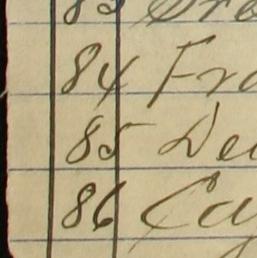 83
84 Fra
85 De
86 Ca